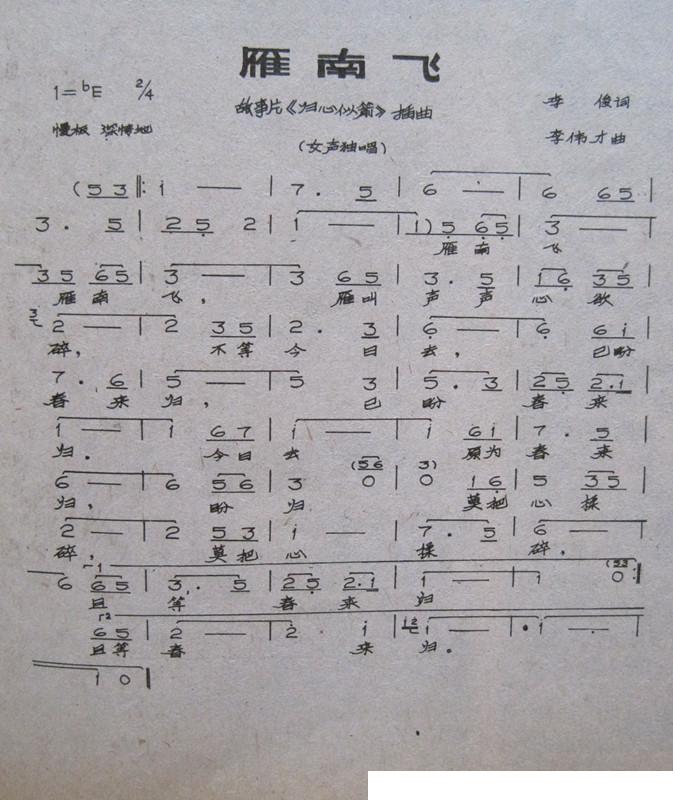 雁南飞
1=ᵇE 2/4
故事片《归心似箭》插曲
李俊词
慢板 深情地
(女声独唱)
李伟才曲
(5 3 ‖: i — | 7 . 5 | 6 — | 6 6 5 |
3 . 5 | 2 5 2 | 1 — | 1) 5 6 5 | 3 — |
雁 南 飞
3 5 6 5 | 3 — | 3 6 5 | 3 . 5 | 1 6 3 5 |
雁 南 飞, 雁叫 声 声 心 欲
2 — | 2 3 5 | 2 . 3 | 6 — | 6 6 i |
碎, 不等 今 日 去, 已盼
7 . 6 | 5 — | 5 3 | 5 . 3 | 2 5 2 . 1 |
春 来 归, 已 盼 春 来
1 — | 1 6 7 | i — | i 6 i | 7 . 5 |
归. 今日 去 愿为 春 来
(5 6 3)
6 — | 6 5 6 | 3 0 | 0 1 6 | 5 3 5 |
归, 盼 归 莫把 心 揉
2 — | 2 5 3 | i — | 7 . 5 | 6 — |
碎, 莫把 心 揉 碎,
6 6 5 | 3 . 5 | 2 5 2 . 1 | 1 — | 1 0 (5 3 :‖
且 等 春 来 归
6 5 | 2 — | 2 i | i — | i — |
且等 春 来 归.
1 0 ‖